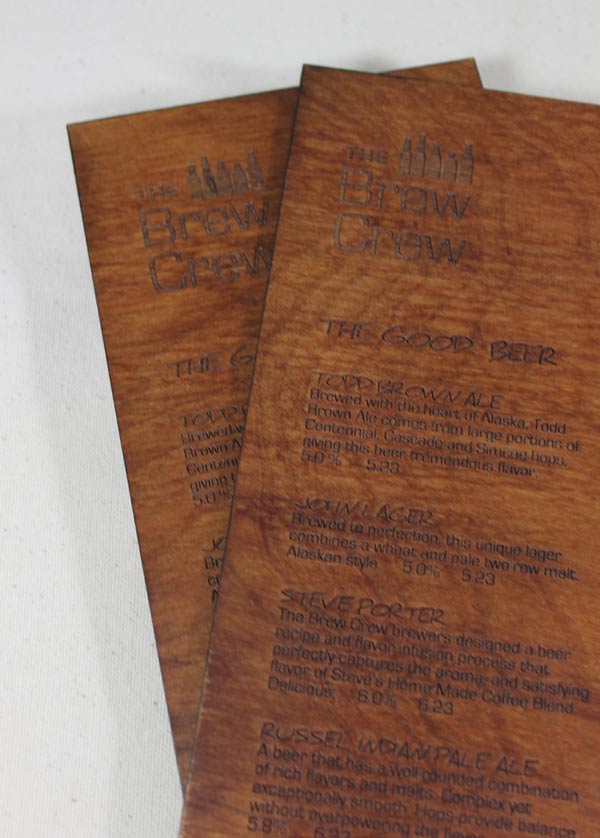 THE
Brew
Crew
THE G
TODD
Brewed w
Brown A
Centen
giving t
5.0%
JO
Br
THE
Brew
Crew
THE GOOD BEER
TODD BROWN ALE
Brewed with the heart of Alaska, Todd
Brown Ale comes from large portions of
Centennial, Cascade and Simcue hops,
giving this beer tremendous flavor.
5.0% 5.23
JOHN LAGER
Brewed to perfection, this unique lager
combines a wheat and pale two row malt.
Alaskan style. 5.0% 5.23
STEVE PORTER
The Brew Crew brewers designed a beer
recipe and flavor infusion process that
perfectly captures the aroma, and satisfying
flavor of Steve's Home Made Coffee Blend.
Delicious. 6.0% 6.23
RUSSEL INDIAN PALE ALE
A beer that has a well rounded combination
of rich flavors and malts. Complex yet
exceptionally smooth. Hops provide balance
without overpowering the flavor
5.8% 5.93